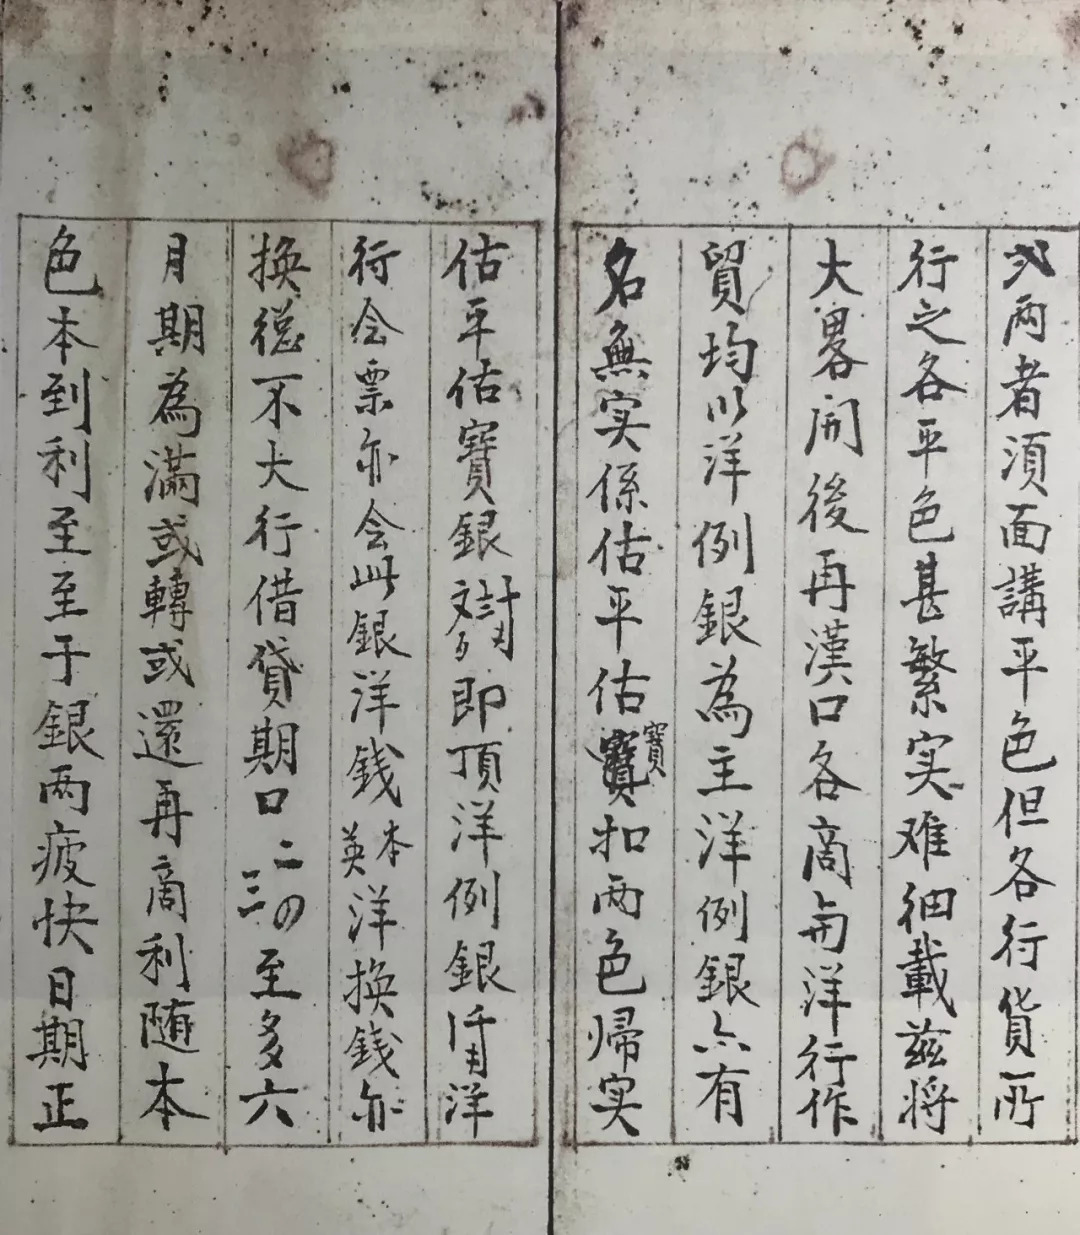 兩者須面講平色但各行貨所
行之各平色甚繁实难細載茲將
大畧開後再漢口各商与洋行作
貿均以洋例銀為主洋例銀六有
名無实係估平估寳扣两色帰实
估平估寳銀即頂洋例銀洋
行会票亦会此銀洋銭本英洋換錢亦
換德不大行借貸期口二三の至多六
月期為滿或轉或還再商利随本
色本到利至至于銀两疲快日期正